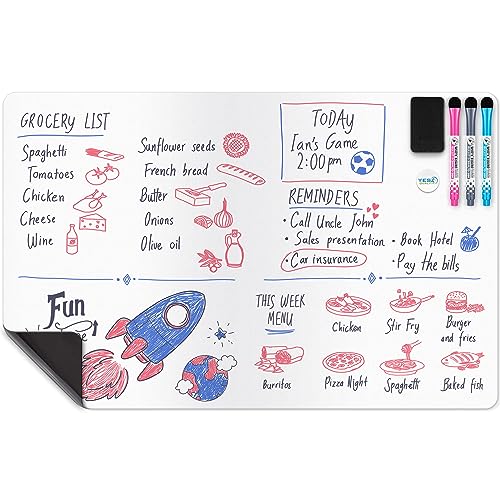 GROCERY LIST
Spaghetti
Tomatoes
Chicken
Cheese
Wine
Sunflower seeds
French bread
Butter
Onions
Olive oil
TODAY
Ian's Game
2:00pm
REMINDERS
• Call Uncle John
• Sales presentation
• Car insurance
• Book Hotel
• Pay the bills
Fun
THIS WEEK
MENU
Chicken
Stir Fry
Burger
and fries
Burritos
Pizza Night
Spaghetti
Baked fish
YES4